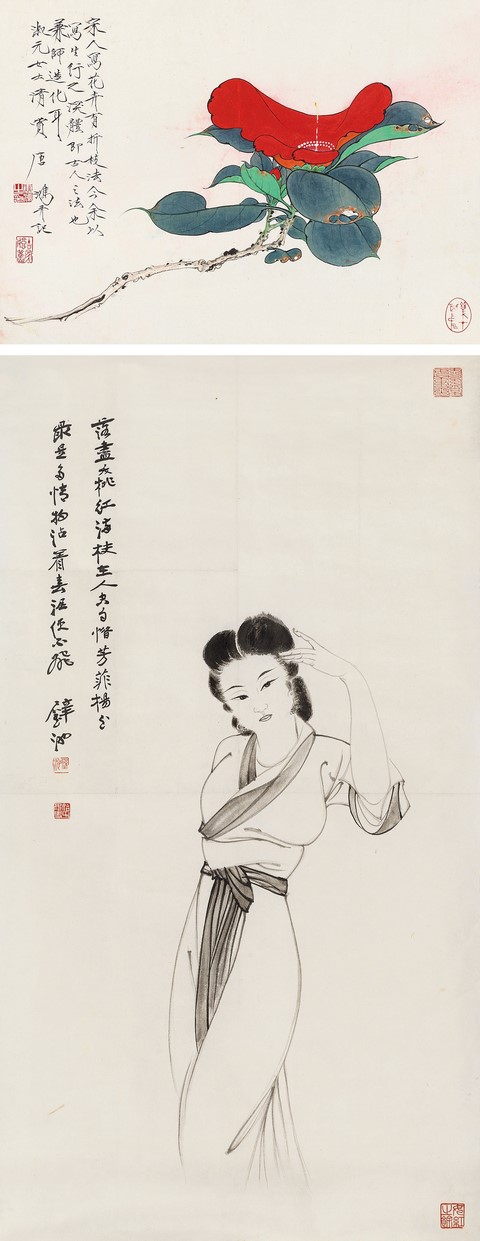 宋人寫花卉有折枝法今余以
寫生行之深體即古人之法也
兼師造化耳
淑元女士清賞
唐鴻
落盡夭桃紅滿枝主人自惜芳菲楊花
最是多情物沾著春泥便不飛